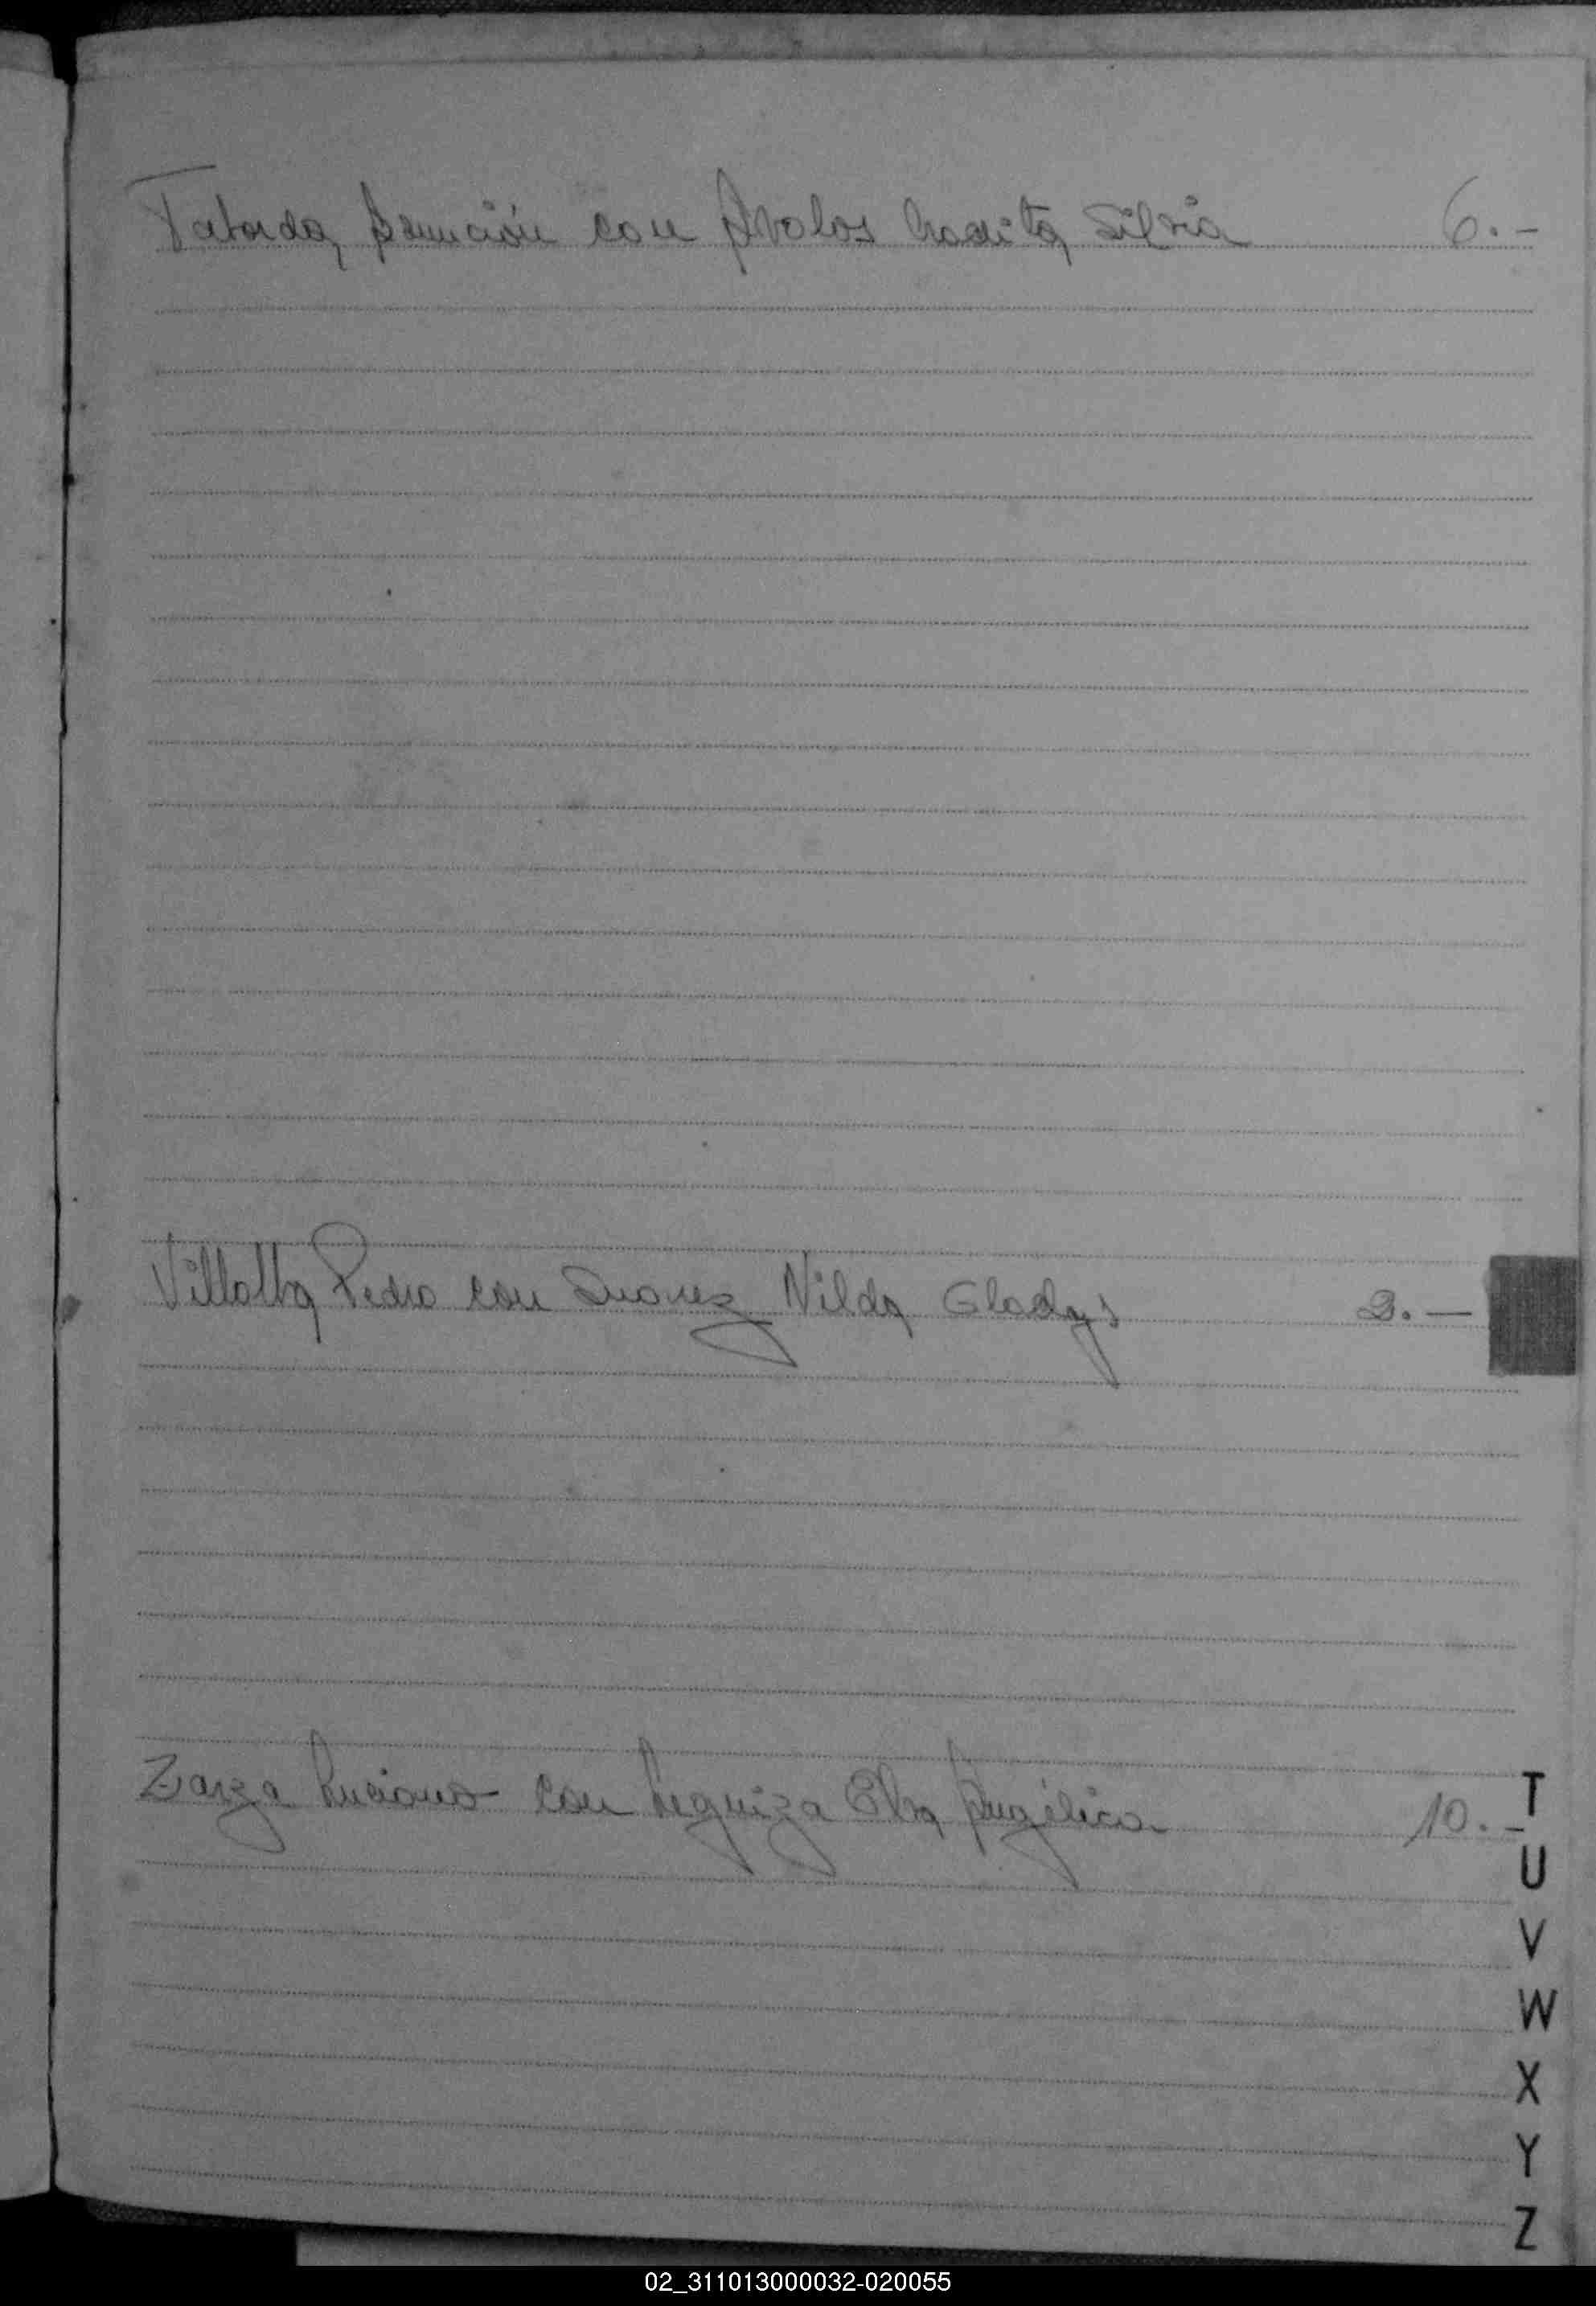 Taborda, Asunción con Avalos Gradita Silvia 6.-
Villalba Pedro con Suarez Nilda Gladys 2.—
Zarza Luciano con Leguiza Elba Angélica 10.-
T
U
V
W
X
Y
Z
02_311013000032-020055